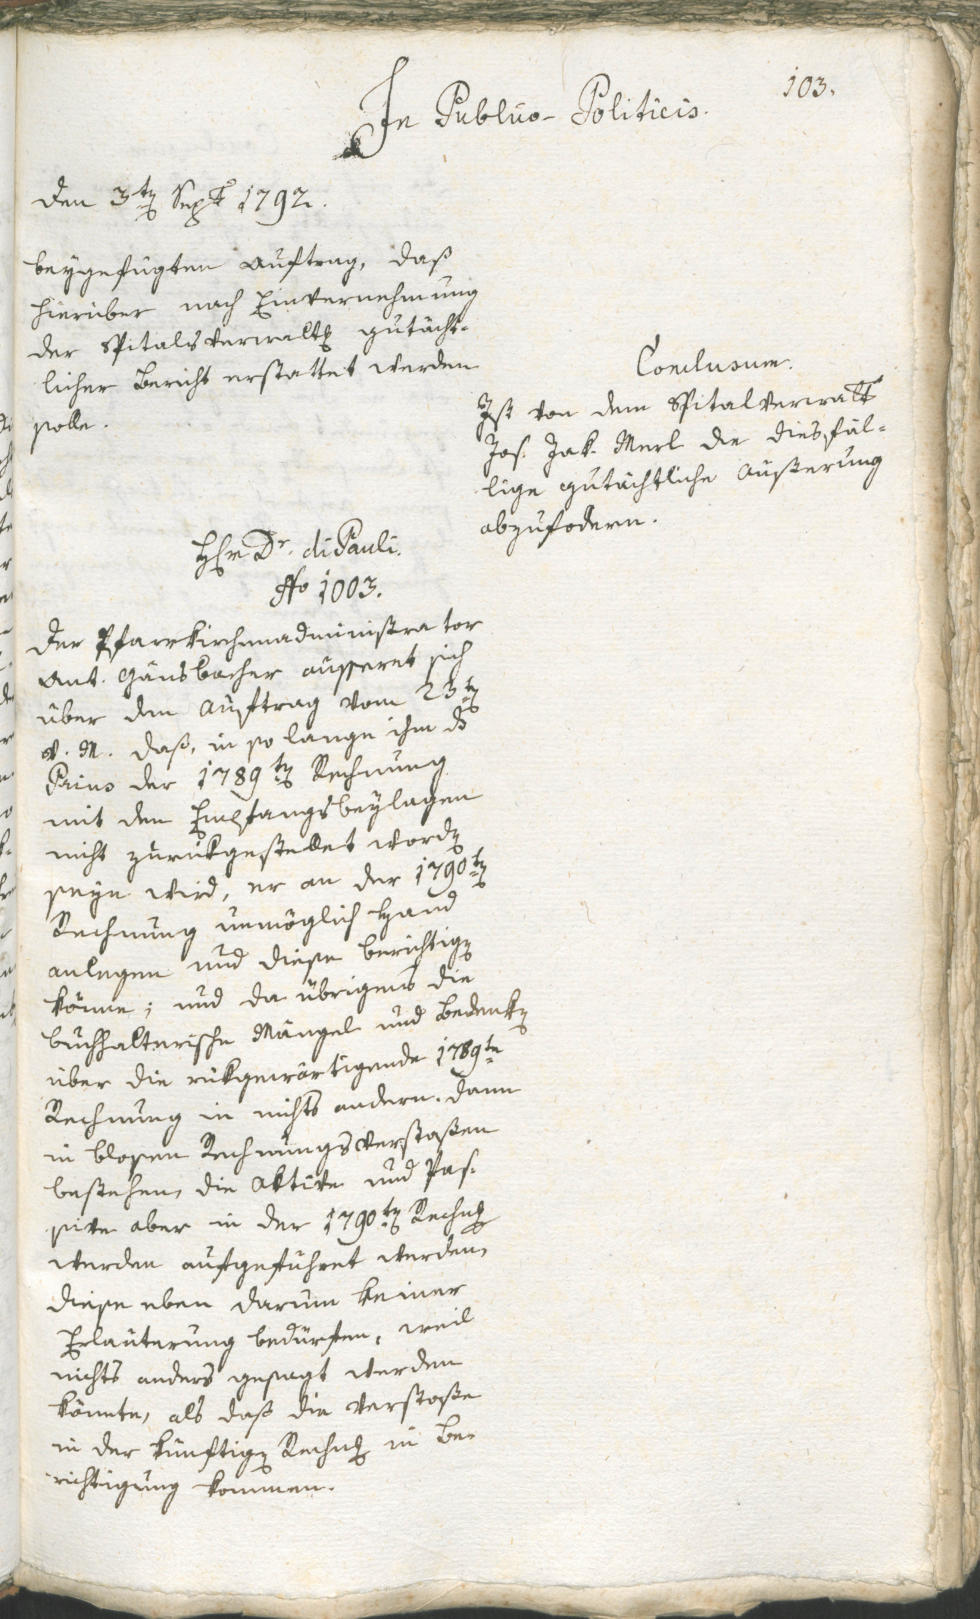 103.
In Publico-Politicis.
den 3ten Sept 1792.
beygefügten Auftrag, daß
hierüber nach Einvernehmung
der Spitalsverwaltg gutächt-
licher Bericht erstattet werden
solle.
Conclusum.
Ist von dem Spitalverwalt
Jos. Jak. Merl die diesfäl-
lige gutächtliche Äußerung
abzufodern.
Hr Dr. di Pauli.
No 1003.
Der Pfarrkirchenadministrator
Ant. Gänsbacher äusseret sich
über den Auftrag vom 23ten
v. M. daß, in so lange ihm ds
Prius der 1789ten Rechnung
mit den Empfangsbeylagen
nicht zurükgestellet worden
seyn wird, er an der 1790ten
Rechnung unmöglich Hand
anlegen und diese berichtigen
könne; und da übrigens die
buchhalterische Mängel und Bedenken
über die rükgewärtigende 1789te
Rechnung in nichts andern. dann
in blosen Rechnungsverstoßen
bestehen, die Aktive und Pas-
sive aber in der 1790ten Rechng
werden aufgeführet werden,
diese eben darum keiner
Erläuterung bedürfen, weil
nichts anders gesagt werden
könnte, als daß die Verstoße
in der künftigen Rechng in Be-
richtigung kommen.